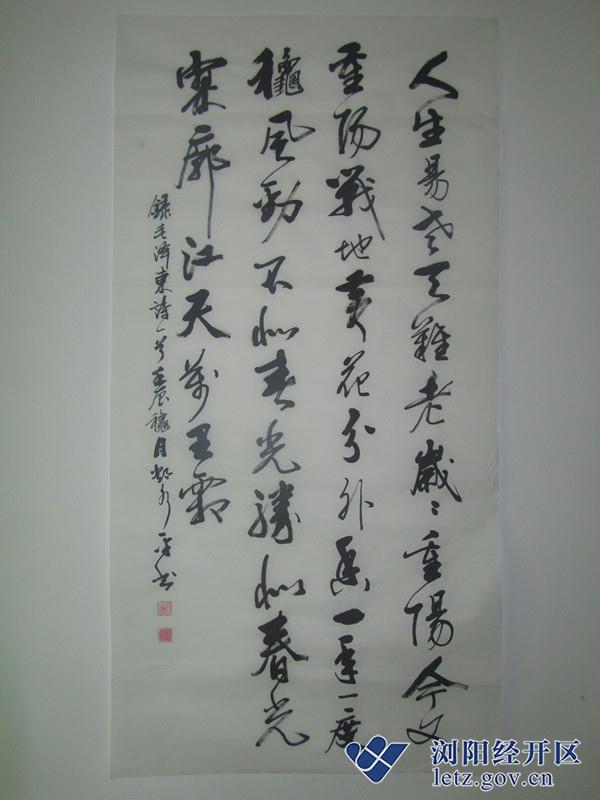 人生易老天難老歲〻重陽今又
重陽戰地黄花分外香一年一度
龝風勁不似春光勝似春光
寥廓江天萬里霜
錄毛澤東詩一首壬辰龝月书
浏阳经开区
letz.gov.cn